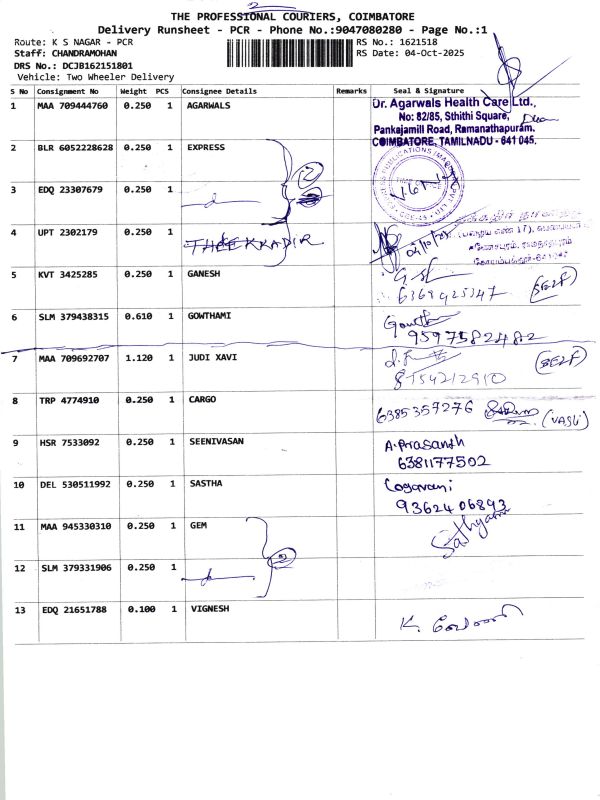 THE PROFESSIONAL COURIERS, COIMBATORE
Delivery Runsheet - PCR - Phone No.:9047080280 - Page No.:1
Route: K S NAGAR - PCR
RS No.: 1621518
Staff: CHANDRAMOHAN
RS Date: 04-Oct-2025
DRS No.: DCJB162151801
Vehicle: Two Wheeler Delivery
S No Consignment No Weight PCS Consignee Details Remarks Seal & Signature
1 MAA 709444760 0.250 1 AGARWALS
Dr. Agarwals Health Care Ltd.,
No: 82/85, Sthithi Square,
Pankajamill Road, Ramanathapuram.
COIMBATORE, TAMILNADU - 641 045.
2 BLR 6052228628 0.250 1 EXPRESS
3 EDQ 23307679 0.250 1
4 UPT 2302179 0.250 1
THEEKKADIR
5 KVT 3425285 0.250 1 GANESH
6369425347 (SELF)
6 SLM 379438315 0.610 1 GOWTHAMI
9597582482
7 MAA 709692707 1.120 1 JUDI XAVI
(SELF)
8154212910
8 TRP 4774910 0.250 1 CARGO
6385359276
9 HSR 7533092 0.250 1 SEENIVASAN
A. Prasanth
6381177502
10 DEL 530511992 0.250 1 SASTHA
9362406893
11 MAA 945330310 0.250 1 GEM
Sathyam
12 SLM 379331906 0.250 1
13 EDQ 21651788 0.100 1 VIGNESH